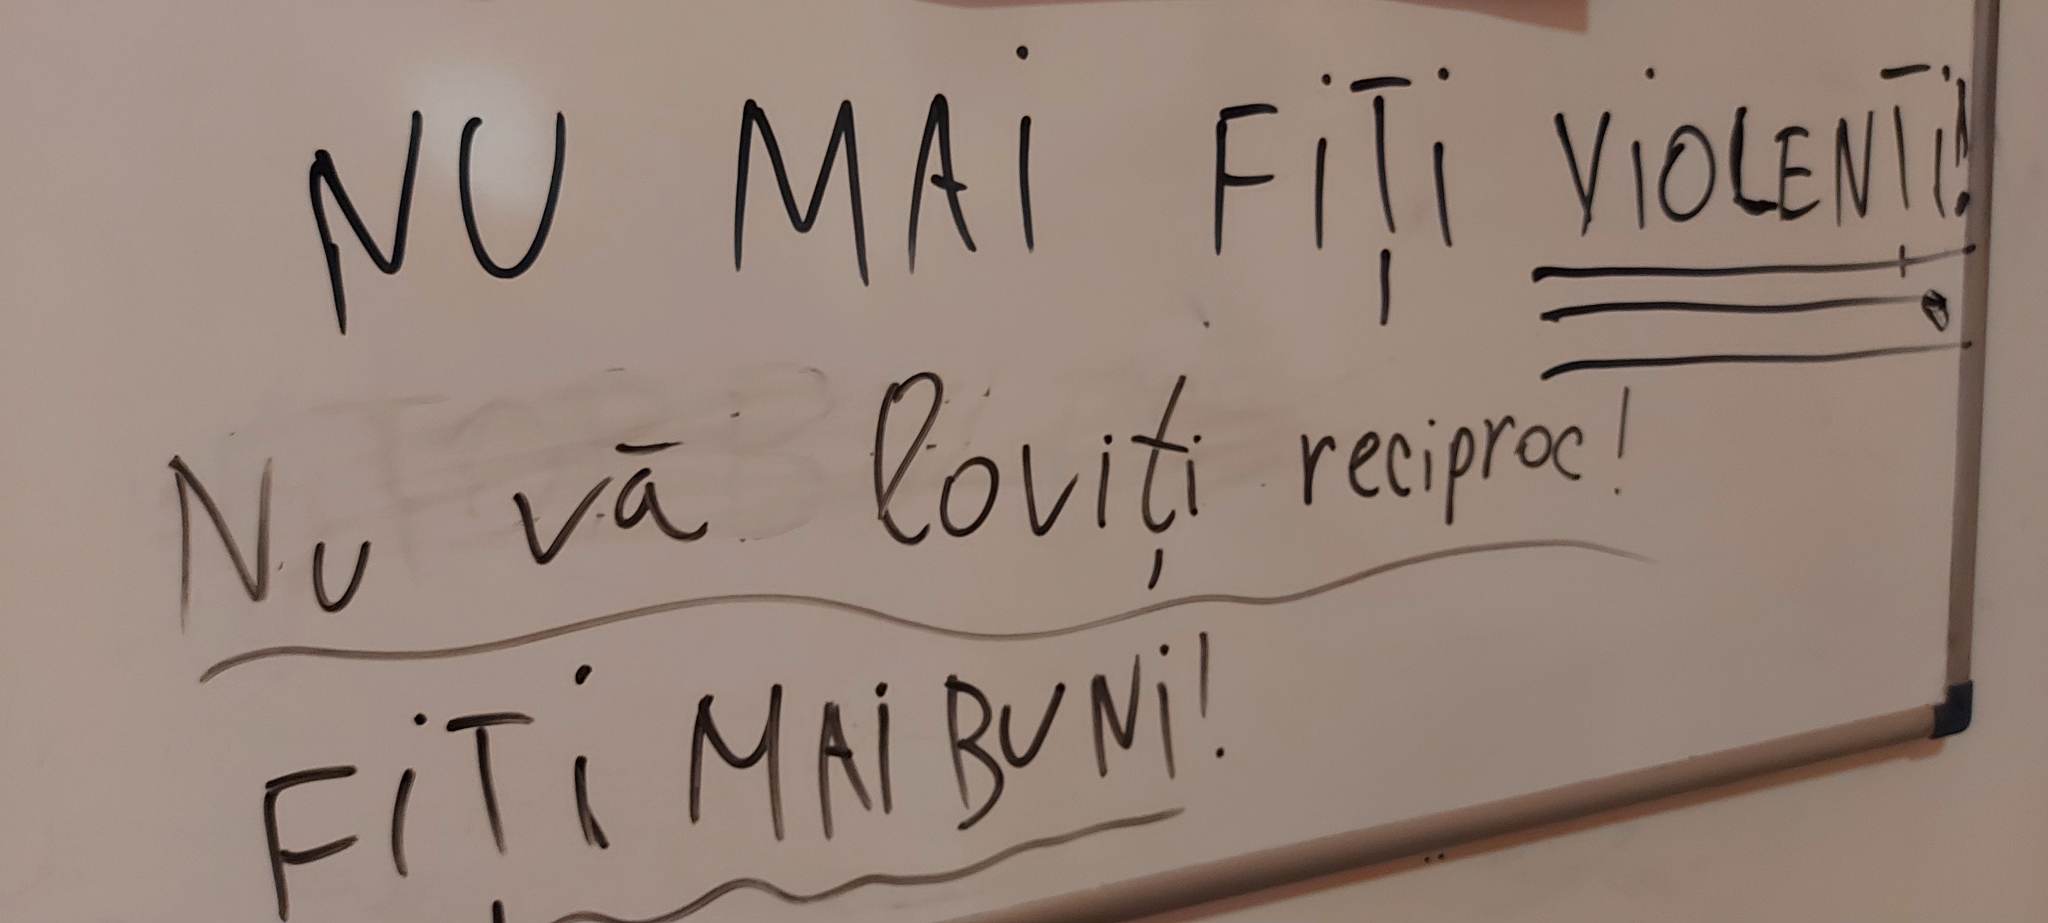 NU MAI FIȚI VIOLENȚI!
Nu vă loviți reciproc!
FIȚI MAI BUNI!